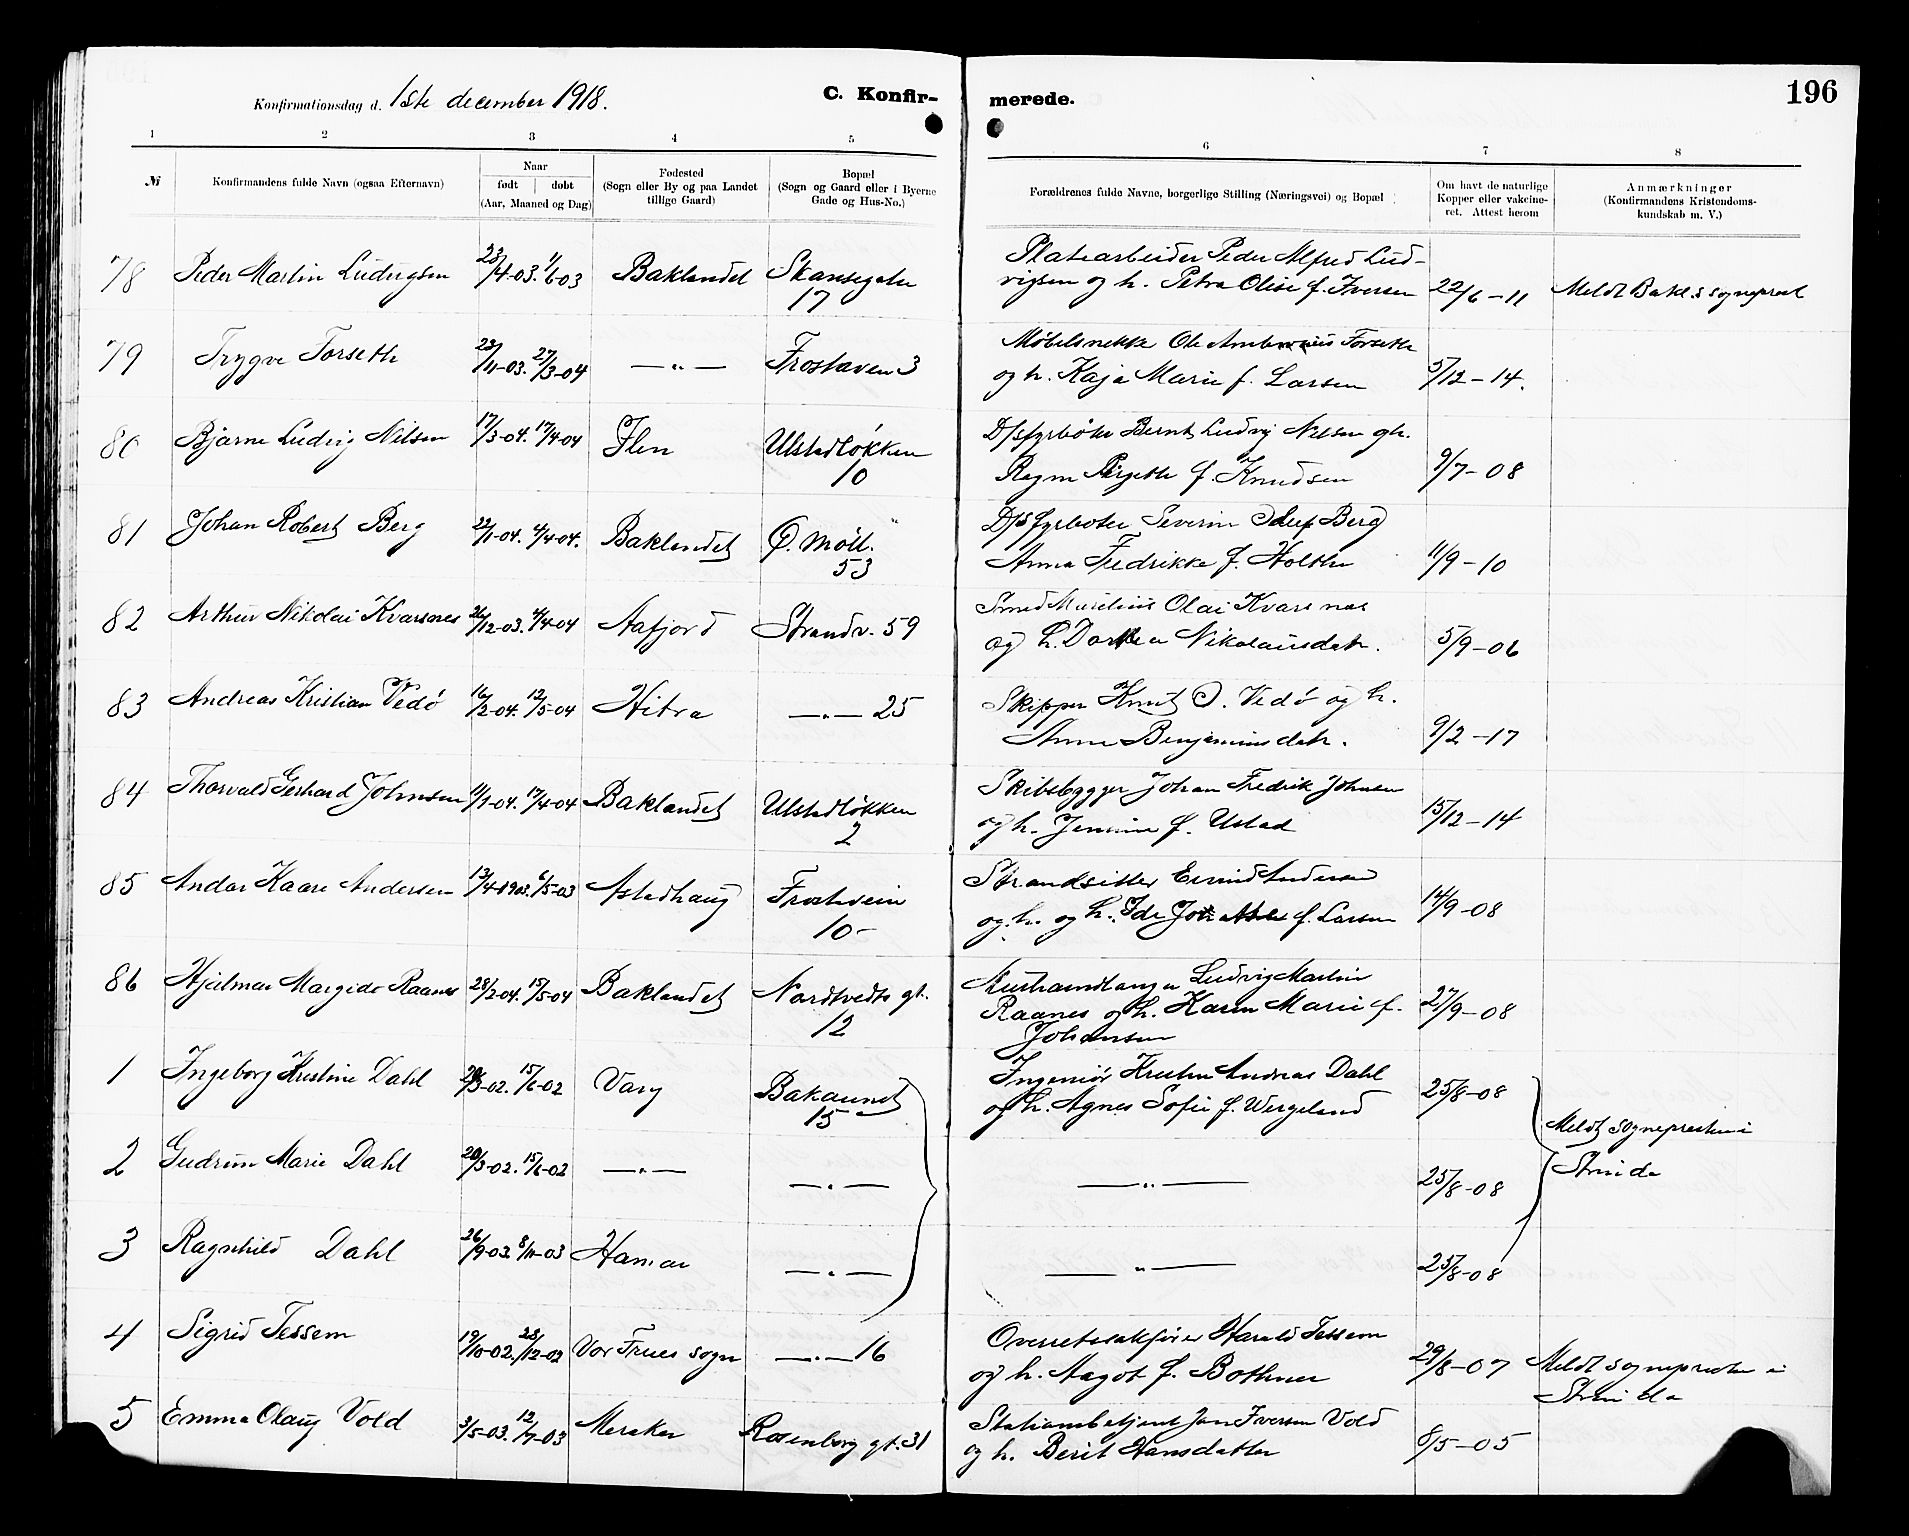 Konfirmationsdag d. 1ste december 1918.
C. Konfir-
merede.
196
1 2 3 4 5 6 7 8
№
Konfirmandens fulde Navn (ogsaa Efternavn)
Naar
født døbt
(Aar, Maaned og Dag)
Fødested
(Sogn eller By og paa Landet
tillige Gaard)
Bopæl
(Sogn og Gaard eller i Byerne
Gade og Hus-No.)
Forældrenes fulde Navne, borgerlige Stilling (Næringsvei) og Bopæl
Om havt de naturlige
Kopper eller vakcine-
ret. Attest herom
Anmærkninger
(Konfirmandens Kristendoms-
kundskab m. V.)
78 Peder Martin Ludvigsen 23/4-03. 1/6-03 Baklandet Skansegaten
17
Platearbeider Peder Alfred Lud-
vigsen og h. Petra Olise f. Iversen 22/6-11 Meldt Bakl.s sogneprest
79 Trygve Forseth 23/11-03. 27/3-04 —"— Frostaveien 3
Møbelsnekker Ole Forseth
og h. Kaja Marie f. Larsen 5/12-14.
80 Bjarne Ludvig Nilsen 17/3-04. 17/4-04 Ilen Ulstadløkken
10
D/sfyrbøter Bernt Ludvig Nilsen og h.
Birgethe f. Knudsen 9/7-08
81 Johan Robert Berg 22/1-04. 4/4-04. Baklandet Ø. Møll.
53
D/s fyrbøter Severin Berg
Anna Fredrikke f. Holthe 11/9-10
82 Arthur Nikolai Kvarsnes 26/12-03. 4/4-04 Aafjord Strandv. 59
Smed Marelius Olai Kvarsnes
og h. Dorthea Nikolaisdatr. 5/9-06
83 Andreas Kristian Vedø 16/2-04. 12/5-04 Hitra —"— 25
Skipper Knut O. Vedø og h.
Anne Benjaminsdatr. 9/2-17
84 Thorvald Gerhard Johnsen 11/1-04. 17/4-04 Baklandet Ulstadløkken
2
Skibsbygger Johan Fredrik Johnsen
og h. Jensine f. Ustad 15/12-14
85 Andor Kaare Andersen 13/4-1903. 6/5-03 Alstadhaug Frostavein
10-
Strandsitter Andersen
og h. og h. Ida f. Larsen 14/9-08
86 Hjalmar Margido Raanes 28/2-04. 15/5-04 Baklandet Nardtvedts gt.
12
Murhaandlanger Ludvig Martin
Raanes og h. Karen Marie f.
Johansen 27/9-08
1 Ingeborg Kristine Dahl 20/3-02. 15/6-02 Vang Bakaunet
15
Ingeniør Kristen Andreas Dahl
og h. Agnes Sofie f. Wergeland 25/8-08
2 Gudrun Marie Dahl 20/3-02. 15/6-02 —"— —"— —"— 25/8-08
Meldt sognepresten i
Strinda
3 Ragnhild Dahl 26/9-03. 8/11-03 Hamar —"— —"— 25/8-08
4 Sigrid Tessem 19/10-02. 28/12-02 Vor Frues sogn —"— 16
Overretssakfører Harald Tessem
og h. Magot f. Bothner 29/8-07 Meldt sognepresten i
Strinda
5 Emma Olaug Vold 3/5-03. 12/7-03 Meraker Rosenborg gt. 31
Stationsbetjent Jon Iversen Vold
og h. Berit Hansdatter 8/5-05